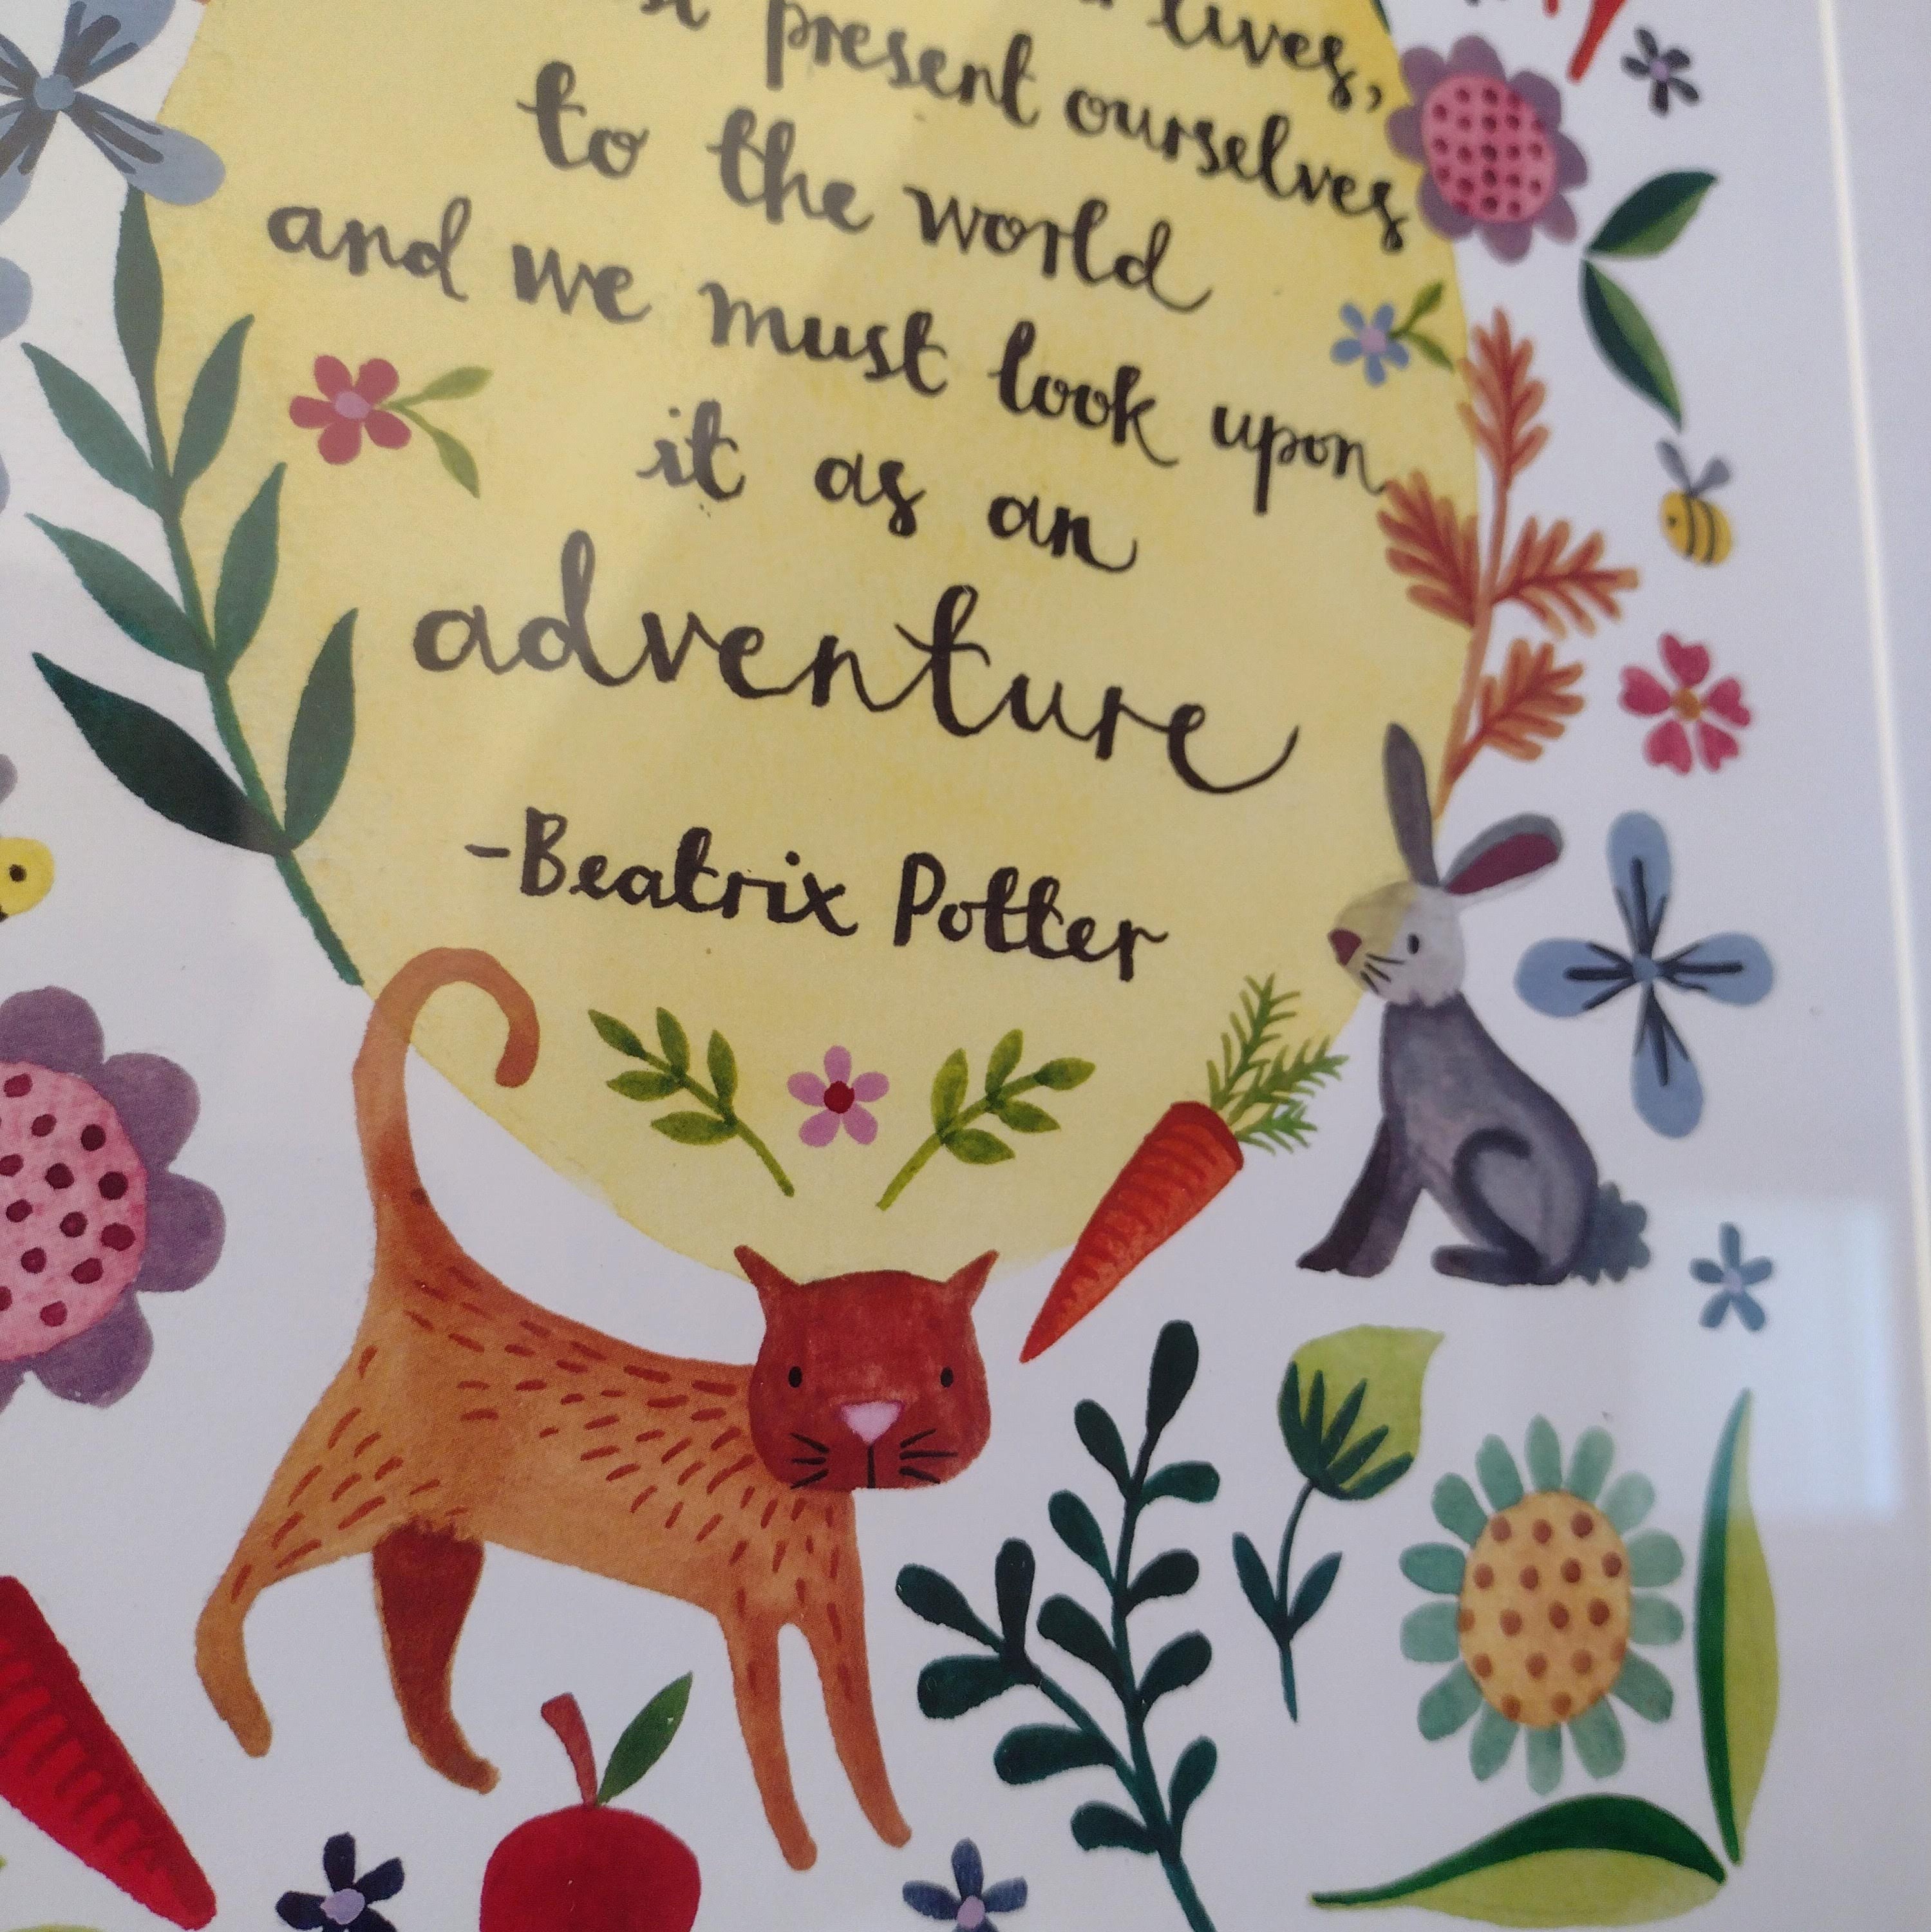 lives,
present ourselves
to the world
and we must look upon
it as an
adventure
-Beatrix Potter